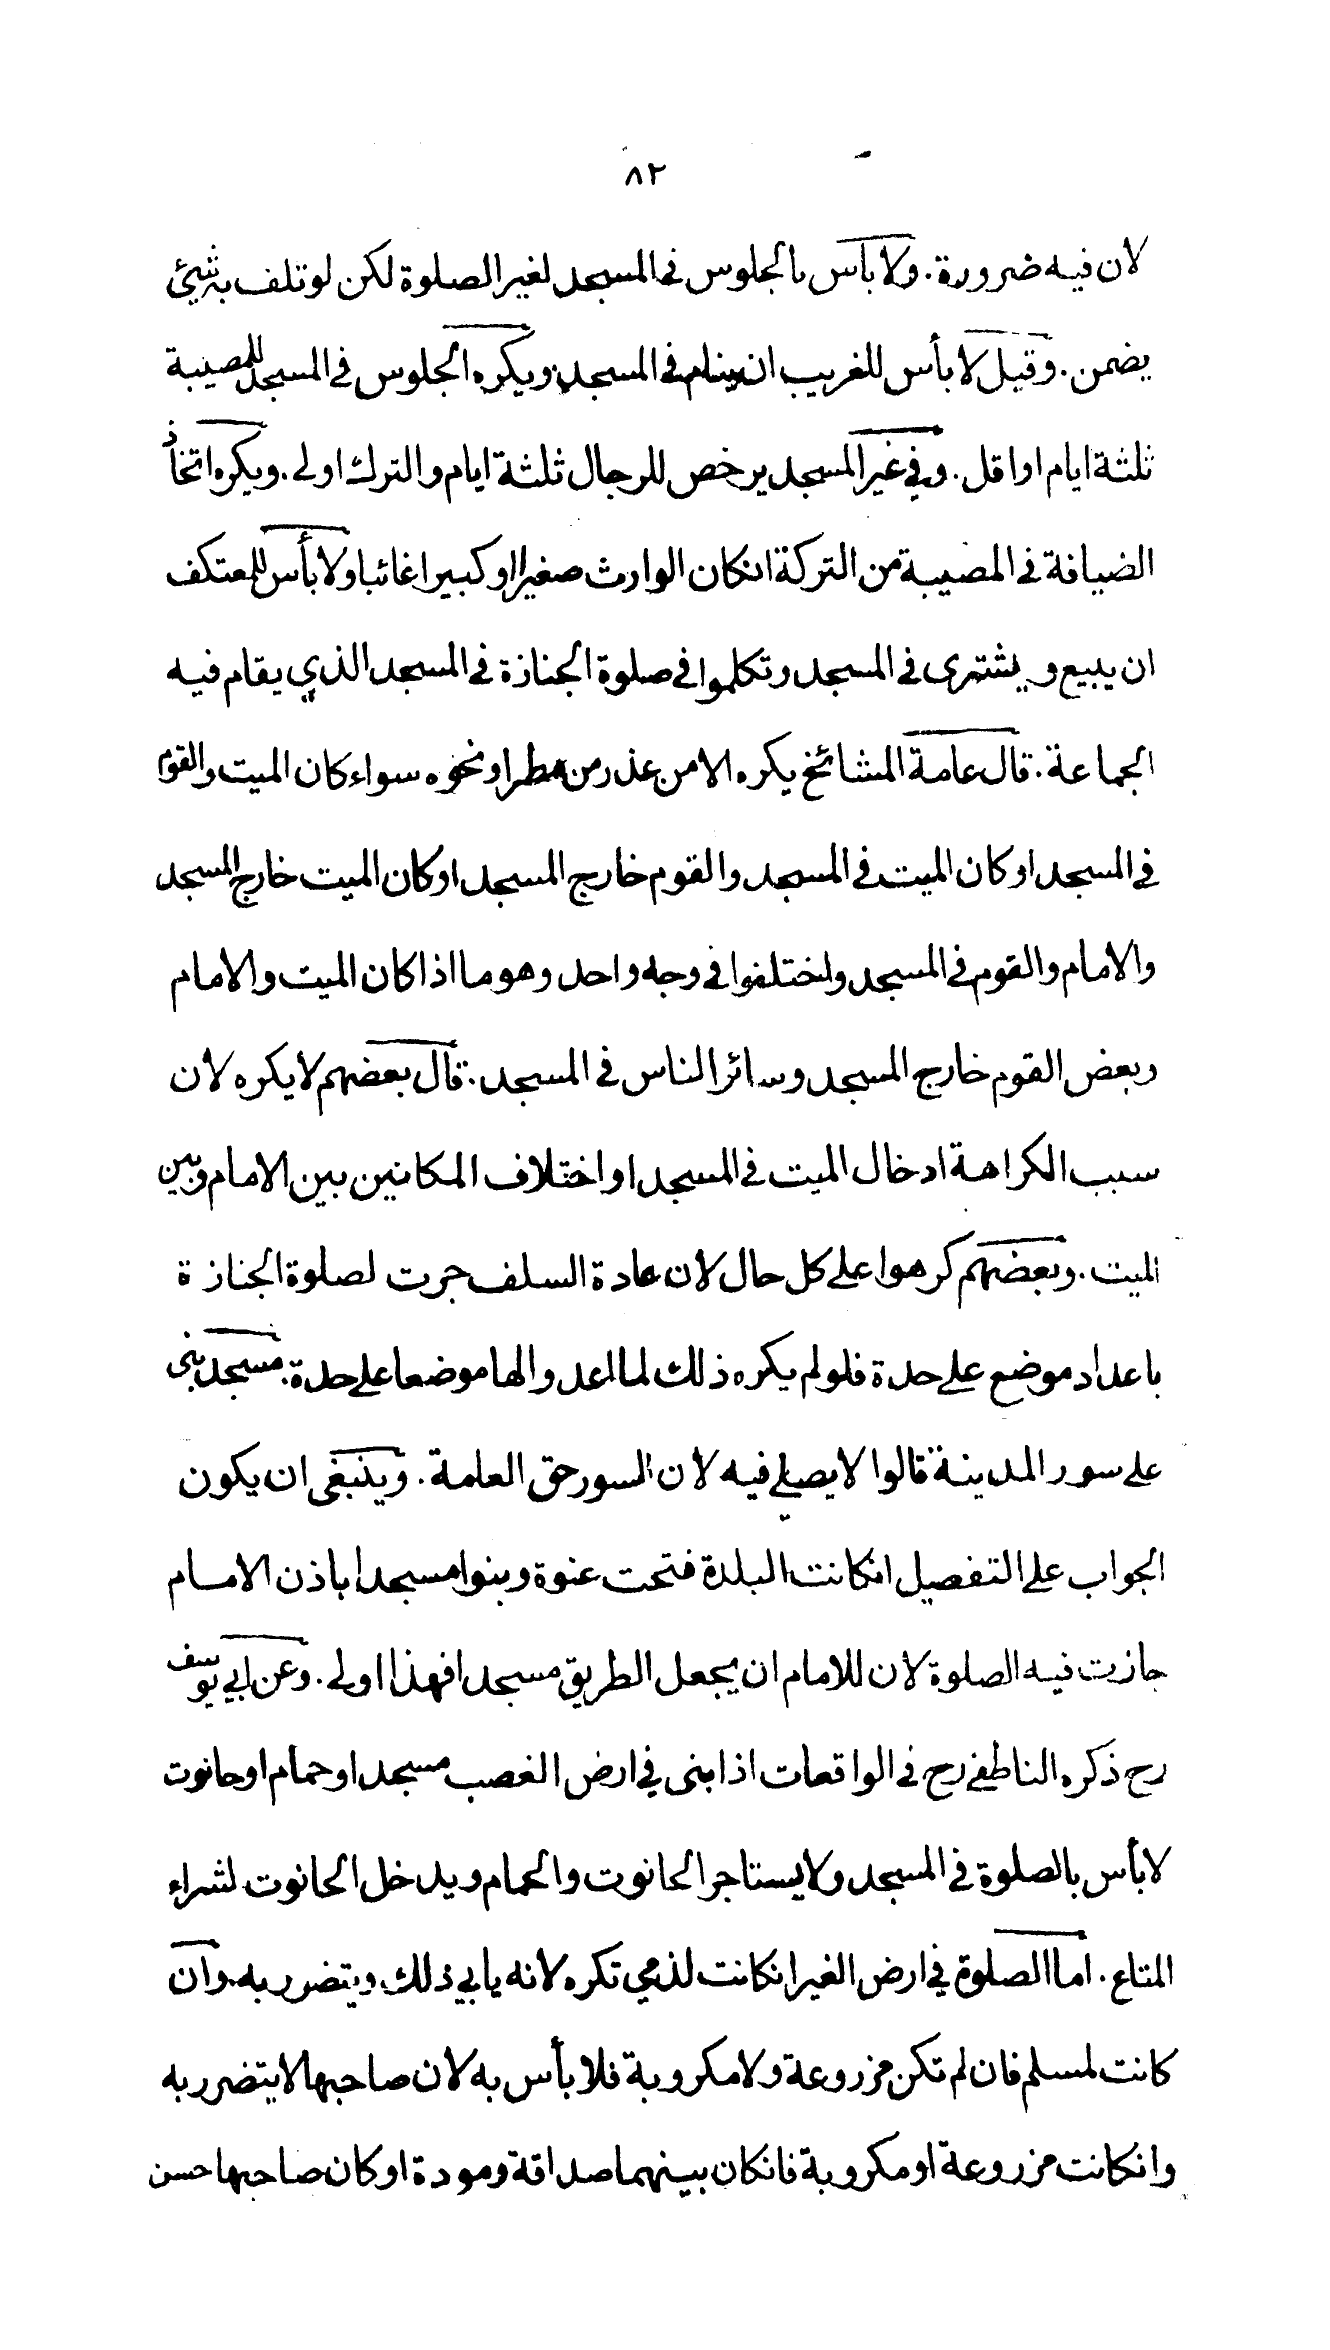 ٨٢
لان فيه ضرورة. ولا بأس بالجلوس في المسجد لغير الصلوة لكن لو تلف به شيئ
يضمن. وقيل لا بأس للغريب ان ينام في المسجد ويكره الجلوس في المسجد للمصيبة
ثلثة ايام او اقل. وفي غير المسجد يرخص للرجال ثلثة ايام والترك اولى. ويكره اتخاذ
الضيافة في المصيبة من التركة انكان الوارث صغيرا او كبيرا غائبا ولا بأس للمعتكف
ان يبيع ويشترى في المسجد وتكلموا في صلوة الجنازة في المسجد الذي يقام فيه
الجماعة. قال عامة المشائخ يكره الا من عذر من مطر او نحوه سواء كان الميت والقوم
في المسجد او كان الميت في المسجد والقوم خارج المسجد او كان الميت خارج المسجد
والامام والقوم في المسجد واختلفوا في وجه واحد وهو ما اذا كان الميت والامام
وبعض القوم خارج المسجد وسائر الناس في المسجد. قال بعضهم لا يكره لان
سبب الكراهة ادخال الميت في المسجد او اختلاف المكانين بين الامام وبين
الميت. وبعضهم كرهوا على كل حال لان عادة السلف جرت لصلوة الجنازة
باعداد موضع على حدة فلو لم يكره ذلك لما اعدوا لها موضعا على حدة. مسجد بنى
على سور المدينة قالوا لا يصلي فيه لان السور حق العامة. وينبغى ان يكون
الجواب على التفصيل انكانت البلدة فتحت عنوة وبنوا مسجدا باذن الامام
جازت فيه الصلوة لان للامام ان يجعل الطريق مسجدا فهذا اولى. وعن ابي يوسف
رح ذكره الناطفي رح في الواقعات اذا بنى في ارض الغصب مسجد او حمام او حانوت
لا بأس بالصلوة في المسجد ولا يستاجر الحانوت والحمام ويدخل الحانوت لشراء
المتاع. اما الصلوة في ارض الغير انكانت لذمي تكره لانه يابي ذلك ويتضرر به. وان
كانت لمسلم فان لم تكن مزروعة ولا مكروبة فلا بأس به لان صاحبها لا يتضرر به
وانكانت مزروعة او مكروبة فانكان بينهما صداقة ومودة او كان صاحبها حسن